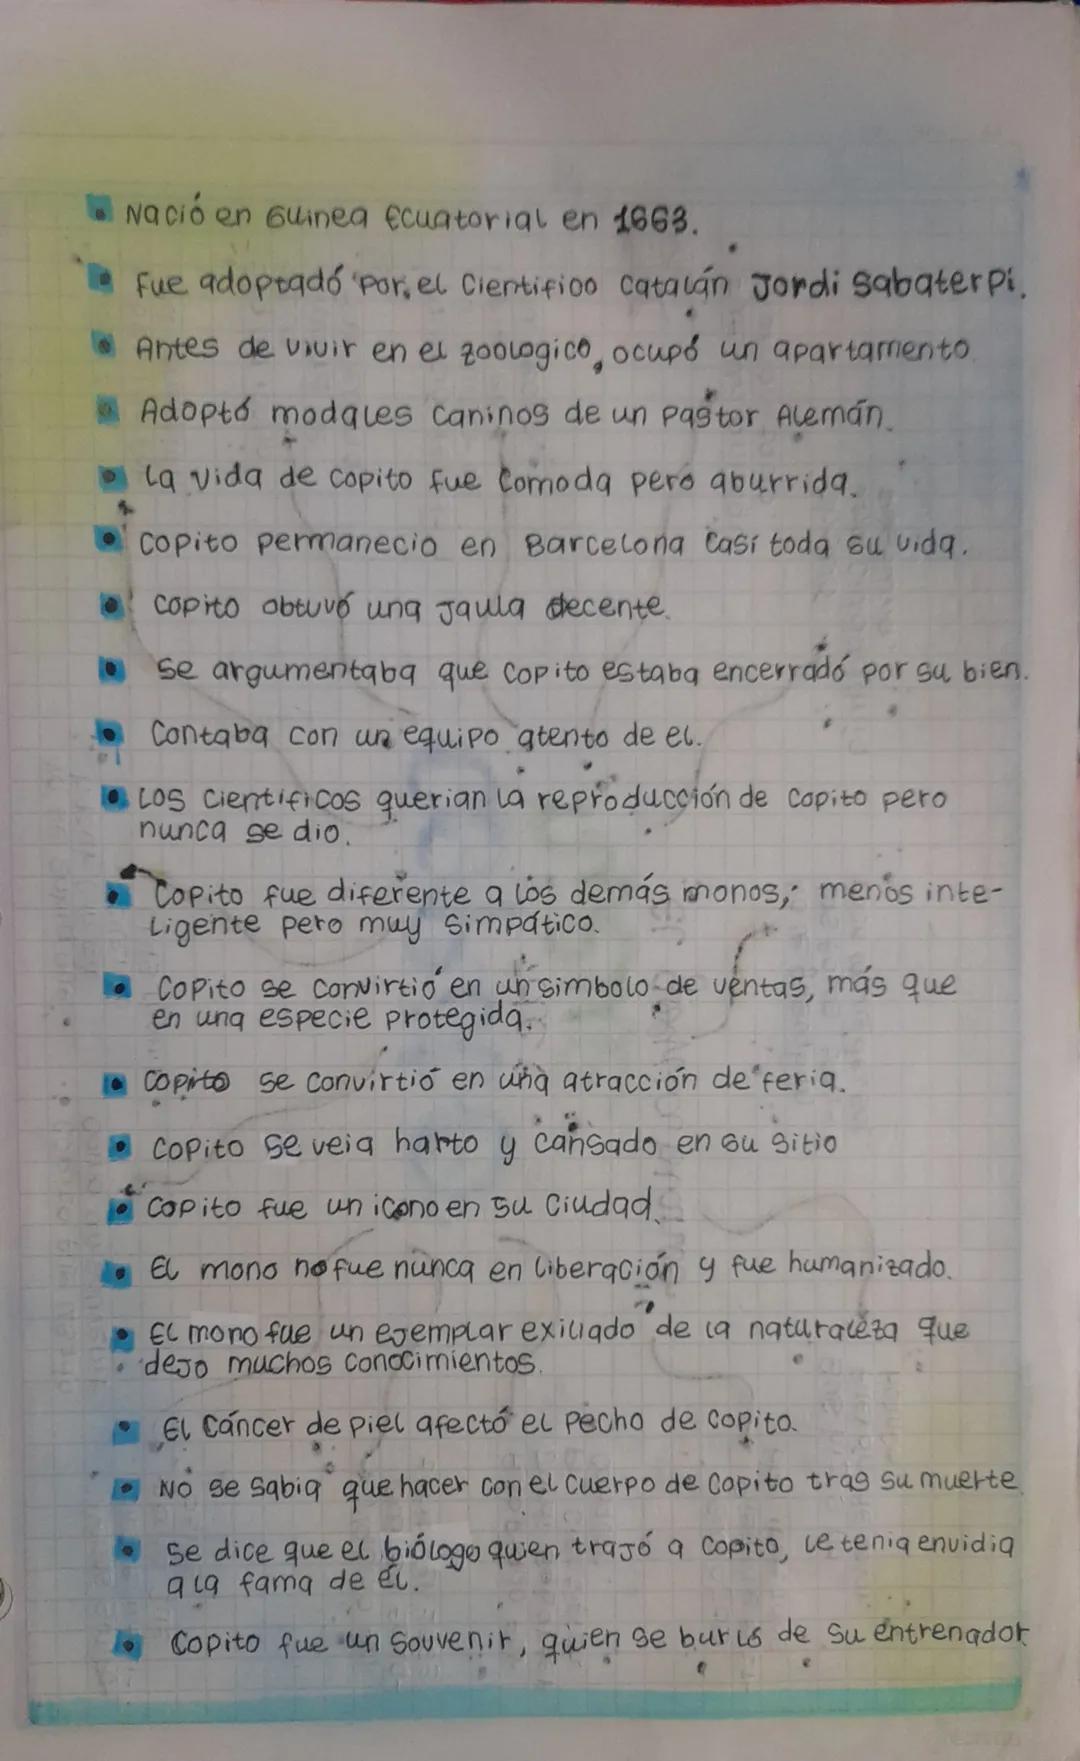 Nació en Guinea Ecuatorial en 1663.
Fue adoptadó por el Cientifico Catalán Jordi Sabater Pi.
Antes de vivir en el zoologico, ocupó un apartamento
Adoptó modales caninos de un Pastor Alemán.
La vida de copito fue comoda pero aburrida.
Copito permanecio en Barcelona Casi toda su vida.
Copito obtuvó una Jaula decente.
Se argumentaba que Copito estaba encerradó por su bien.
Contaba con un equipo atento de el.
Los Cientificos querian la reproducción de Copito pero
nunca se dio.
Copito fue diferente a los demás monos, menos inte-
ligente pero muy simpático.
Copito se convirtió en un simbolo de ventas, más que
en una especie protegida.
Copito se convirtió en una atracción de feria.
Copito se veia harto y cansado en su sitio
Copito fue un icono en su Ciudad.
El mono no fue nunca en liberación y fue humanizado.
El mono fue un ejemplar exiliado de la naturaleza que
dejo muchos conocimientos.
El Cáncer de piel afectó el pecho de copito.
No se sabia que hacer con el cuerpo de Copito tras su muerte
Se dice que el biólogo quien trajó a Copito, le tenia envidia
a la fama de él.
Copito fue un Souvenir, quien se burló de su entrenador